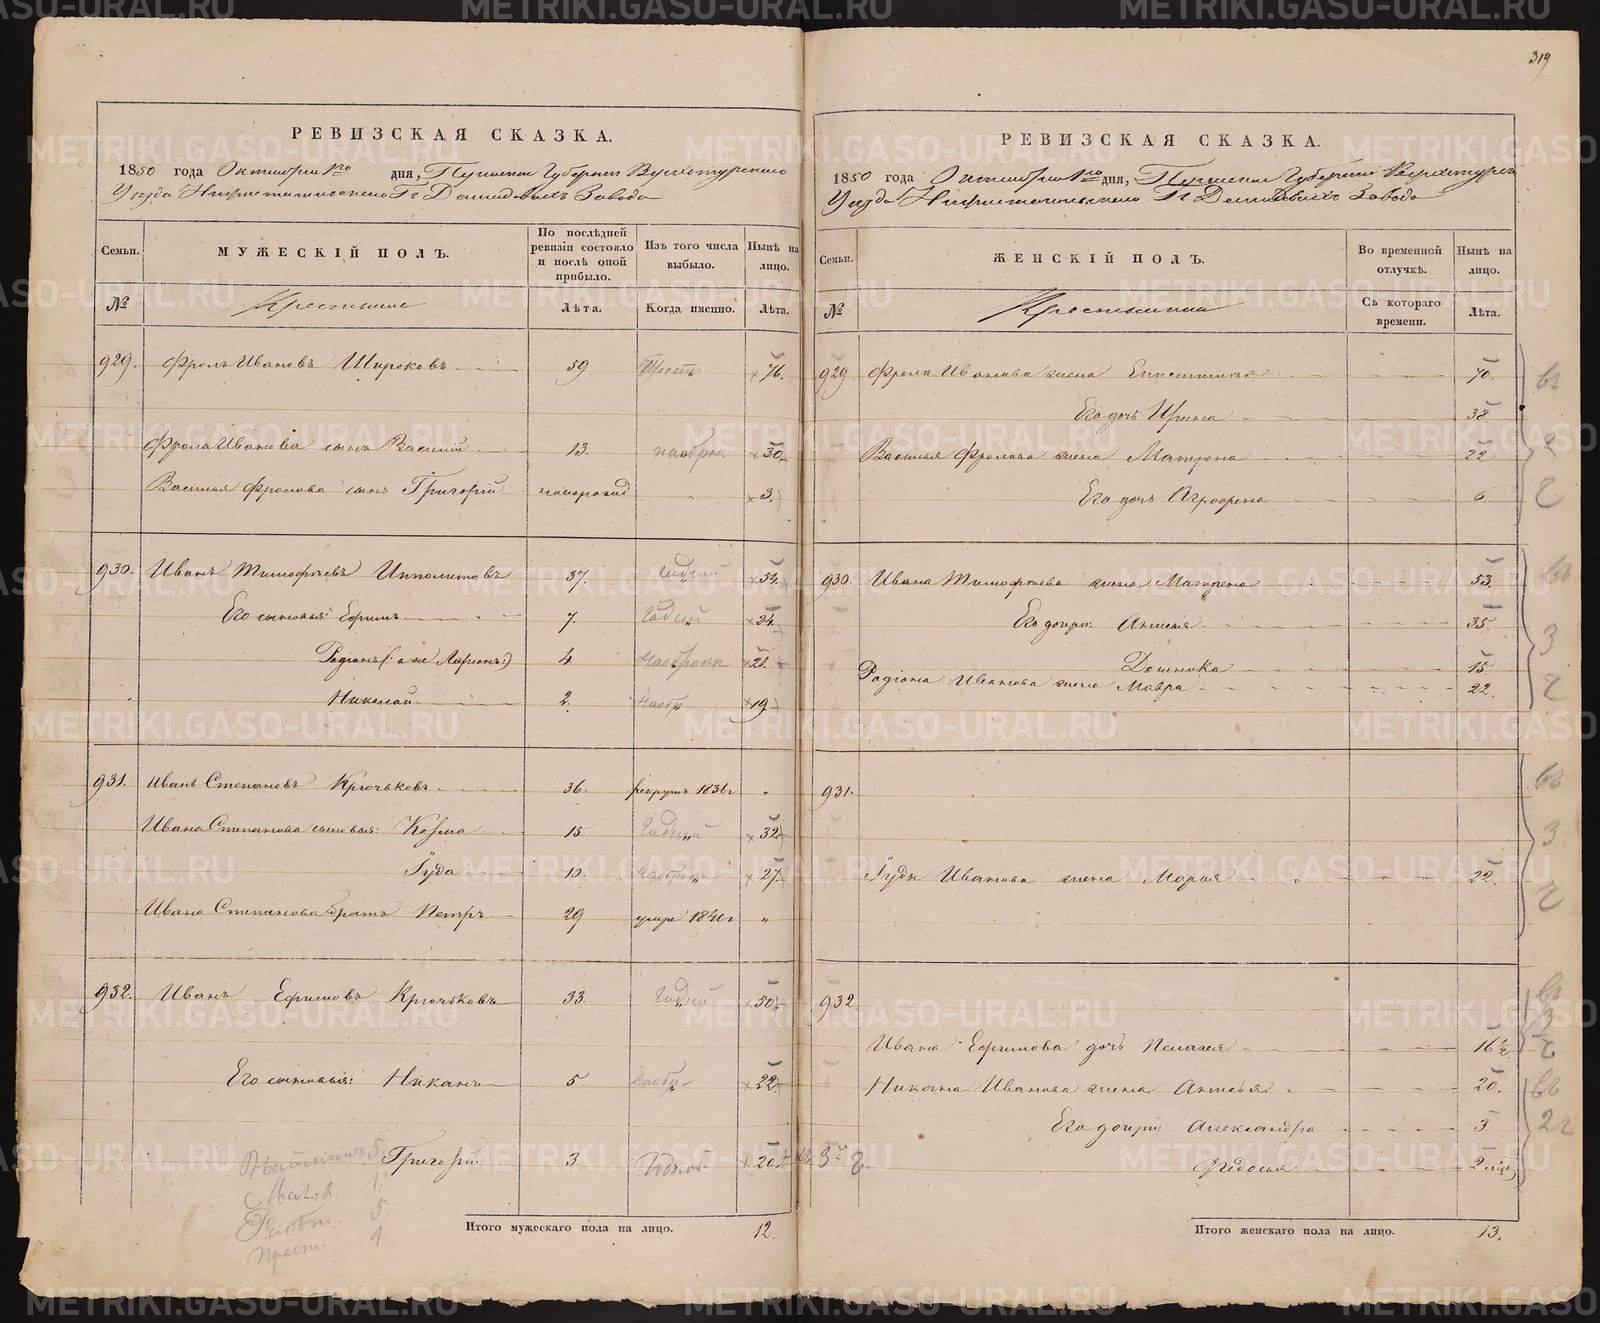 319
РЕВИЗСКАЯ СКАЗКА.
1850 года Октября 1го дня, Пермской Губернии Верхотурского
Уезда Нижнетагильского Гг Демидовыхъ Завода
Семьи.
МУЖЕСКІЙ ПОЛЪ.
По послѣдней ревизіи состояло и послѣ оной прибыло.
Изъ того числа выбыло.
Нынѣ на лицо.
№
Крестьяне
Лѣта.
Когда именно.
Лѣта.
929. Фролъ Ивановъ Широковъ 59 76.
Фрола Иванова сынъ Василій 13. наоброк 30
Василья Фролова сынъ Григорій новорожд 3
930. Иванъ Тимофѣевъ Ипполитовъ 37. Годный 54.
Его сыновья: Ефимъ 7. Годный 24.
Родіонъ (: а не Ларіонъ:) 4 Наоброк 21.
Николай 2. Наобр 19
931. Иванъ Степановъ Крючьковъ 36. рекрутъ 1836г
Ивана Степанова сыновья: Козма 15 Годный 32
Іуда 10. Наоброк 27.
Ивана Степанова братъ Петръ 29 умре 1840г "
932. Иванъ Ефимовъ Крючьковъ 33. Годный 50
Его сыновья: Никанъ 5. Наобр 22
Григорій 3 Годной 20
5
1
5
1
Итого мужескаго пола на лицо. 12.
РЕВИЗСКАЯ СКАЗКА.
1850 года Октября 1го дня, Пермской Губерніи Верхотурск
Уезда Нижнетагильского Гг Демидовыхъ Завода
Семьи.
ЖЕНСКІЙ ПОЛЪ.
Во временной отлучкѣ.
Нынѣ на лицо.
№
Крестьянки
Съ котораго времени.
Лѣта.
929. Фрола Иванова жена Епистимья 70.
Его дочь Ирина 38.
Василья Фролова жена Матрена 22
Его дочь Агрофена 6.
930. Ивана Тимофѣева жена Матрена 53.
Его дочери: Анисья 35.
Домника 15
Родіона Иванова жена Мавра 22.
931.
Іуды Иванова жена Марья 22.
932
Ивана Ефимова дочь Пелагея 16 1/2
Никана Иванова жена Анисья 20.
Его дочери: Александра 3
Федосья 2 міс
Итого женскаго пола на лицо. 13.
METRIKI.GASO-URAL.RU